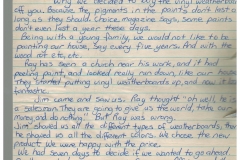 Why we decided to buy the vinyl weatherboards
off you. Because the pigments in the paints don't last as
long as they should. Choice magazine says, some paints
don't even last a year these days.
Being with a young family, we would not like to be
painting our house, say every five years. And with the
wood rot etc, etc.
Ray has seen a church near his work, and it had
peeling paint, and looked really run down, like our house.
They started putting vinyl weatherboards up, and now it looks
fantastic.
Jim came and saw us. Ray thought "oh well, he is
a salesman. They are going to give us the works, take our
money and do nothing". But Ray was wrong.
Jim showed us all the different types of weatherboards,
He showed us all the different colors. We chose the new
product. We were happy with the price.
We had seven days to decide if we wanted to go ahead